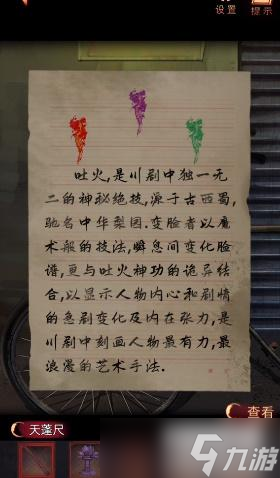 设置 提示
吐火,是川剧中独一无
二的神秘绝技,源于古西蜀,
驰名中华梨园.变脸者以魔
术般的技法,瞬息间变化脸
谱,更与吐火神功的诡异结
合,以显示人物内心和剧情
的急剧变化及内在张力,是
川剧中刻画人物最有力,最
浪漫的艺术手法.
查看
天蓬尺
九游